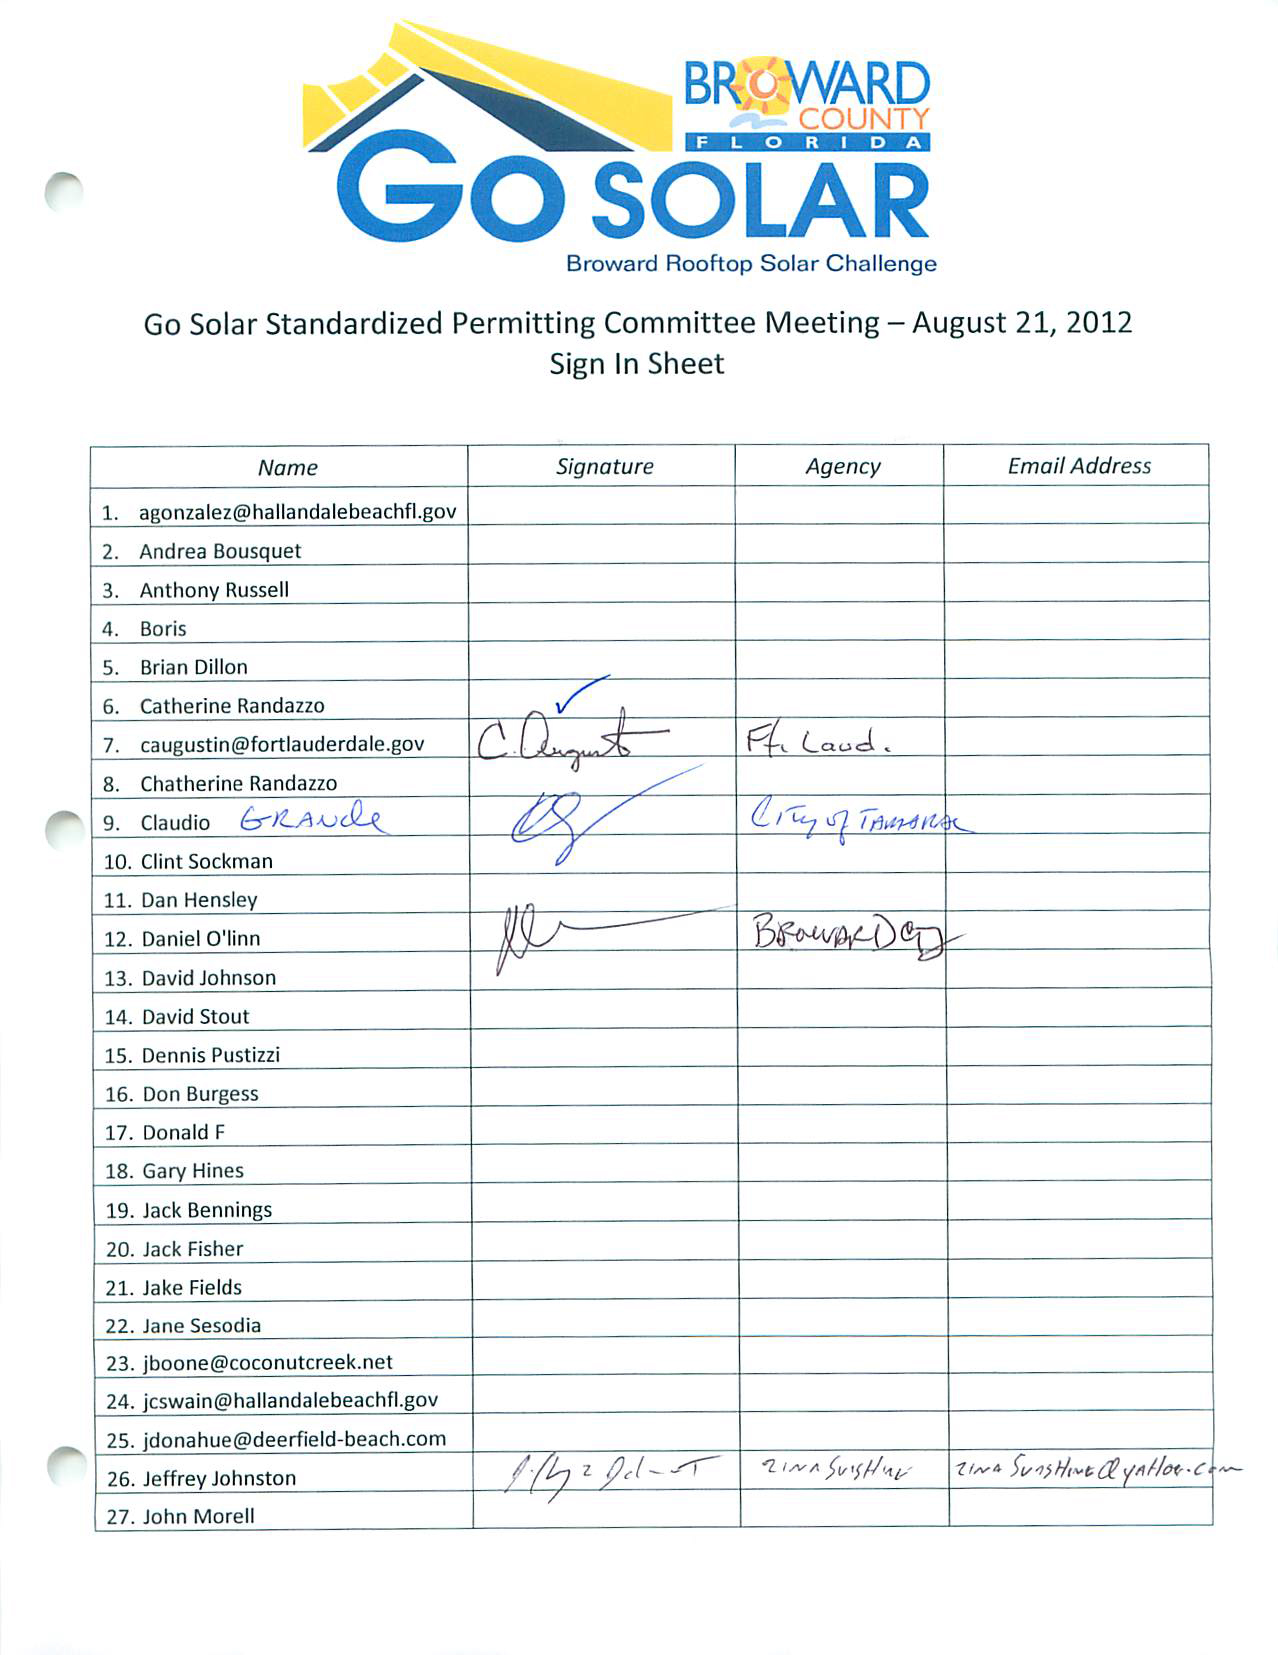 BROWARD
COUNTY
FLORIDA
GO SOLAR
Broward Rooftop Solar Challenge
Go Solar Standardized Permitting Committee Meeting – August 21, 2012
Sign In Sheet
Name Signature Agency Email Address
1. agonzalez@hallandalebeachfl.gov
2. Andrea Bousquet
3. Anthony Russell
4. Boris
5. Brian Dillon
6. Catherine Randazzo
7. caugustin@fortlauderdale.gov C. Augustin Ft. Laud.
8. Chatherine Randazzo
9. Claudio GRANDE City of TAMARAC
10. Clint Sockman
11. Dan Hensley
12. Daniel O'linn BROWARD Cty
13. David Johnson
14. David Stout
15. Dennis Pustizzi
16. Don Burgess
17. Donald F
18. Gary Hines
19. Jack Bennings
20. Jack Fisher
21. Jake Fields
22. Jane Sesodia
23. jboone@coconutcreek.net
24. jcswain@hallandalebeachfl.gov
25. jdonahue@deerfield-beach.com
26. Jeffrey Johnston
27. John Morell